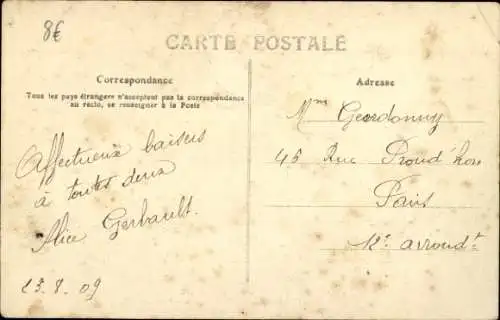 8€
CARTE POSTALE
Correspondance
Tous les pays étrangers n'acceptent pas la correspondance
au recto, se renseigner à la Poste
Affectueux baisers
à toutes deux
Alice Gerbault.
23.8.09
Adresse
Mme
45 Rue Proud'hon
Paris
12e arrondt